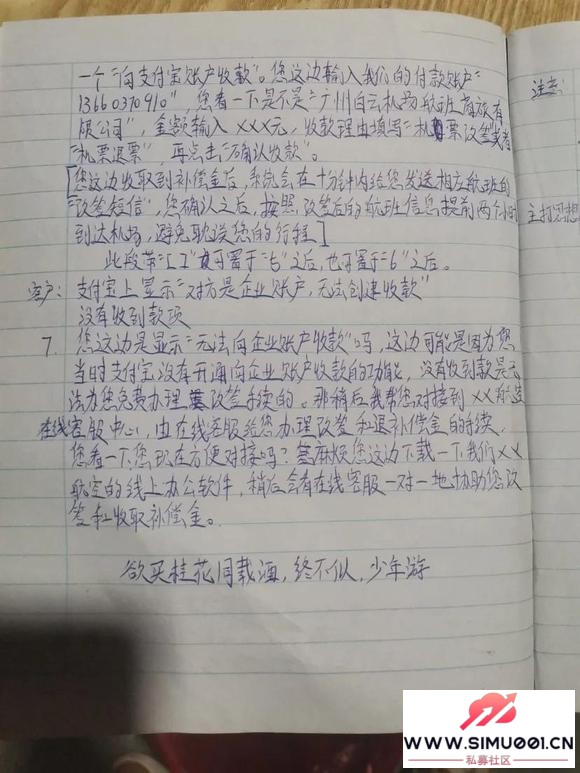 一个“向支付宝账户收款”。您这边输入我们的付款账户“
13660370910”,您看一下是不是“广州白云机场航班商旅有
限公司”,金额输入XXX元,收款理由填写“机票改签或者
“机票退票”,再点击“确认收款”。
[您这边收取到补偿金后,系统会在十分钟内给您发送相应航班的
“改签短信”,您确认之后,按照改签后的航班信息提前两个小时
到达机场,避免耽误您的行程]
此段带“[ ]”可置于“5”之后,也可置于“6”之后。
客户:支付宝上显示“对方是企业账户,无法创建收款”
没有收到款项
7. 您这边是显示“无法向企业账户收款”吗,这边可能是因为您
当时支付宝没有开通向企业账户收款的功能,没有收到款是无
法为您免费办理改签手续的。那稍后我帮您对接到XX航空
在线客服中心,由在线客服给您办理改签和退补偿金的手续,
您看一下,您现在方便对接吗?麻烦您这边下载一下我们XX
航空的线上办公软件,稍后会有在线客服一对一地协助您改
签和收取补偿金。
欲买桂花同载酒,终不似,少年游
注意:
主打思想
WWW.SIMU001.CN
私募社区